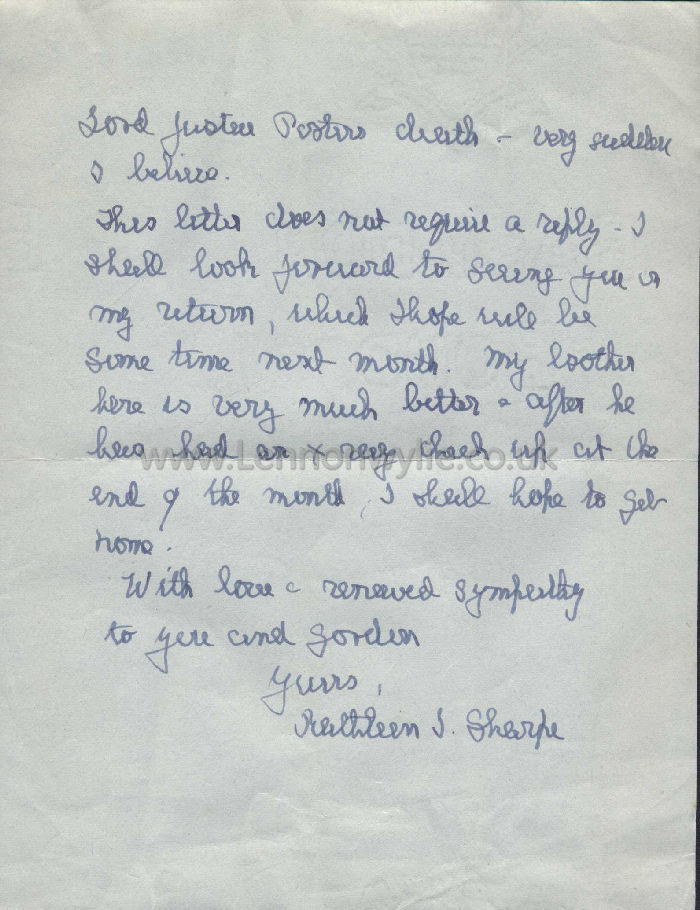 Lord Justice Porters death – very sudden
I believe.
This letter does not require a reply – I
shall look forward to seeing you on
my return, which I hope will be
some time next month. My brother
here is very much better & after he
has had an x ray check up at the
end of the month, I shall hope to get
home.
With love & renewed sympathy
to you and Gordon
Yours,
Kathleen I. Sharpe
www.Lennonwylie.co.uk